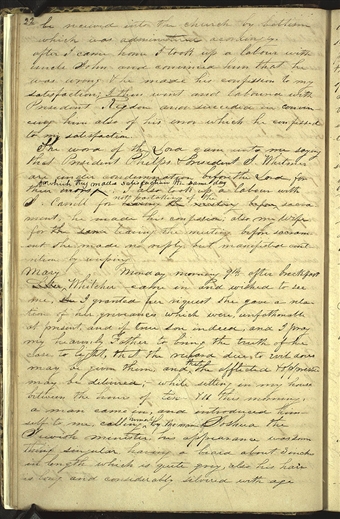 22 be received into the church by baptism
which was administered accordingly
after I came home I took up a labour with
uncle John and convinced him that he
was wrong & he made his confession to my
satisfaction; I then went and laboured with
President Rigdon and succeded in convin
cing him also of his error which he confessed
to my satisfaction.
The word of the Lord came unto me saying
that President Phelps & President J. Whitmer
are under condemnation before the Lord, for
their errors
for which they made satisfaction the same day
I also took up a labour with
J. Carrill for leaving the meeting before sacra
not partaking of the
ment, he made his confession; also my wife
for the same leaving the meeting before sacram
ent she made no reply, but manifested cont
rition by weeping
Mary Monday morning 9th after breckfast
Whitcher came in and wished to see
me, I granted her request she gave a rela
tion of her grievances which were, unfathonable
at present, and if true sore indeed, and I pray
my heavenly Father to bring the truth of her
case to light, that the reward due to evil doers
may be given them, and that the afflicted & oppressed
may be delivered; while sitting in my house
between the hours of ten & 11 this morning
a man came in, and introduced him
self to me, calling himself by the name of Joshua the
Jewish minister, his appearance was some
thing singular having a beard about 3 inch
es in length which is quite grey, also his hair
is long and considerably silvered with age